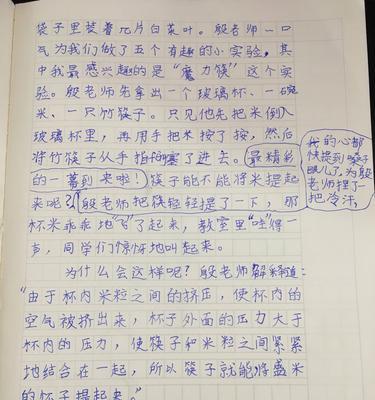 袋子里装着几片白菜叶。殷老师一口
气为我们做了五个有趣的小实验，其
中我最感兴趣的是“魔力筷”这个实
验。殷老师先拿出一个玻璃杯、一碗
米、一只竹筷子。只见他先把米倒入
玻璃杯里，再用手把米按了按，然后
将竹筷子从手指间塞了进去。最精彩
的一幕到来啦！筷子能不能将米提起
来呢？殷老师把筷轻轻提了一下，那
杯米乖乖地“飞”了起来，教室里“哇”得一
声，同学们惊讶地叫起来。
为什么会这样呢？殷老师解释道：
“由于杯内米粒之间的挤压，使杯内的
空气被挤出来，杯子外面的压力大于
杯内的压力，使筷子和米粒之间紧紧
地结合在一起，所以筷子就能将盛米
的杯子提起来。”
我的心都
快提到嗓子
眼儿了，为殷
老师捏了一
把冷汗，